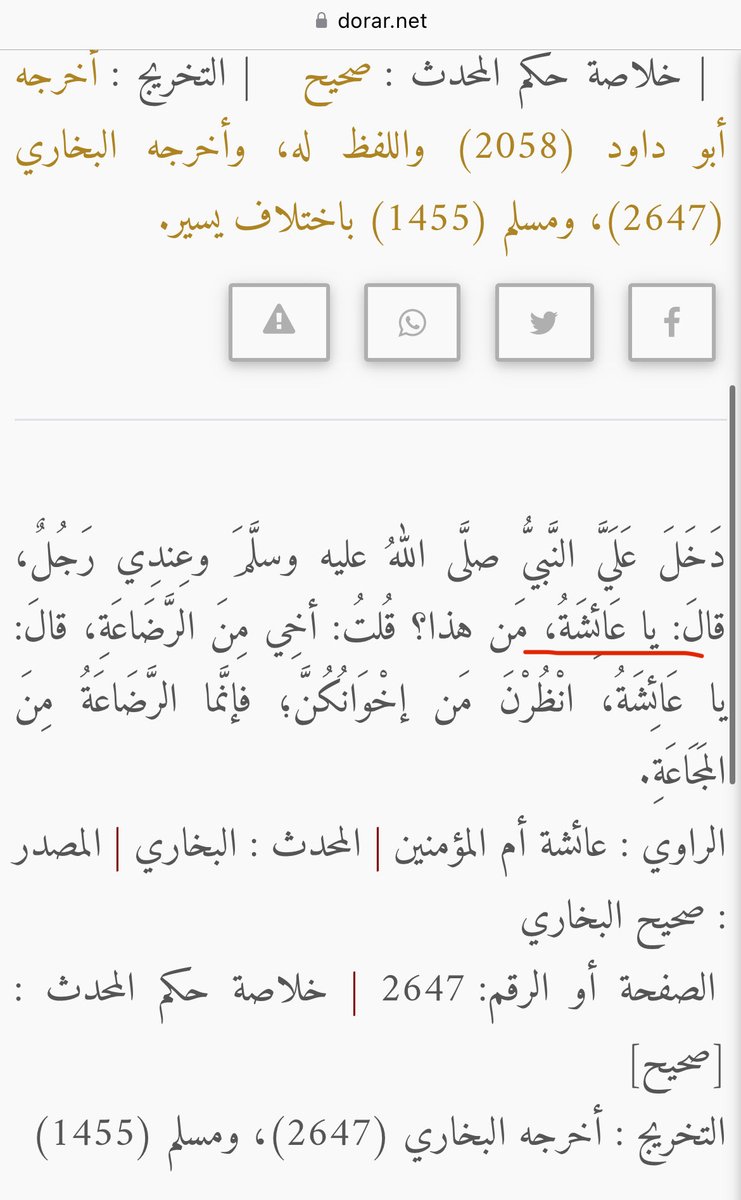 dorar.net
| خلاصة حكم المحدث : صحيح | التخريج : أخرجه
أبو داود (2058) واللفظ له، وأخرجه البخاري
(2647)، ومسلم (1455) باختلاف يسير.
دَخَلَ عَلَيَّ النَّبيُّ صلَّى اللهُ عليه وسلَّمَ وعِندِي رَجُلٌ،
قالَ: يا عَائِشَةُ، مَن هذا؟ قُلتُ: أخِي مِنَ الرَّضَاعَةِ، قالَ:
يا عَائِشَةُ، انْظُرْنَ مَن إخْوَانُكُنَّ؛ فإنَّما الرَّضَاعَةُ مِنَ
المَجَاعَةِ.
الراوي : عائشة أم المؤمنين | المحدث : البخاري | المصدر
: صحيح البخاري
الصفحة أو الرقم: 2647 | خلاصة حكم المحدث :
[صحيح]
التخريج : أخرجه البخاري (2647)، ومسلم (1455)